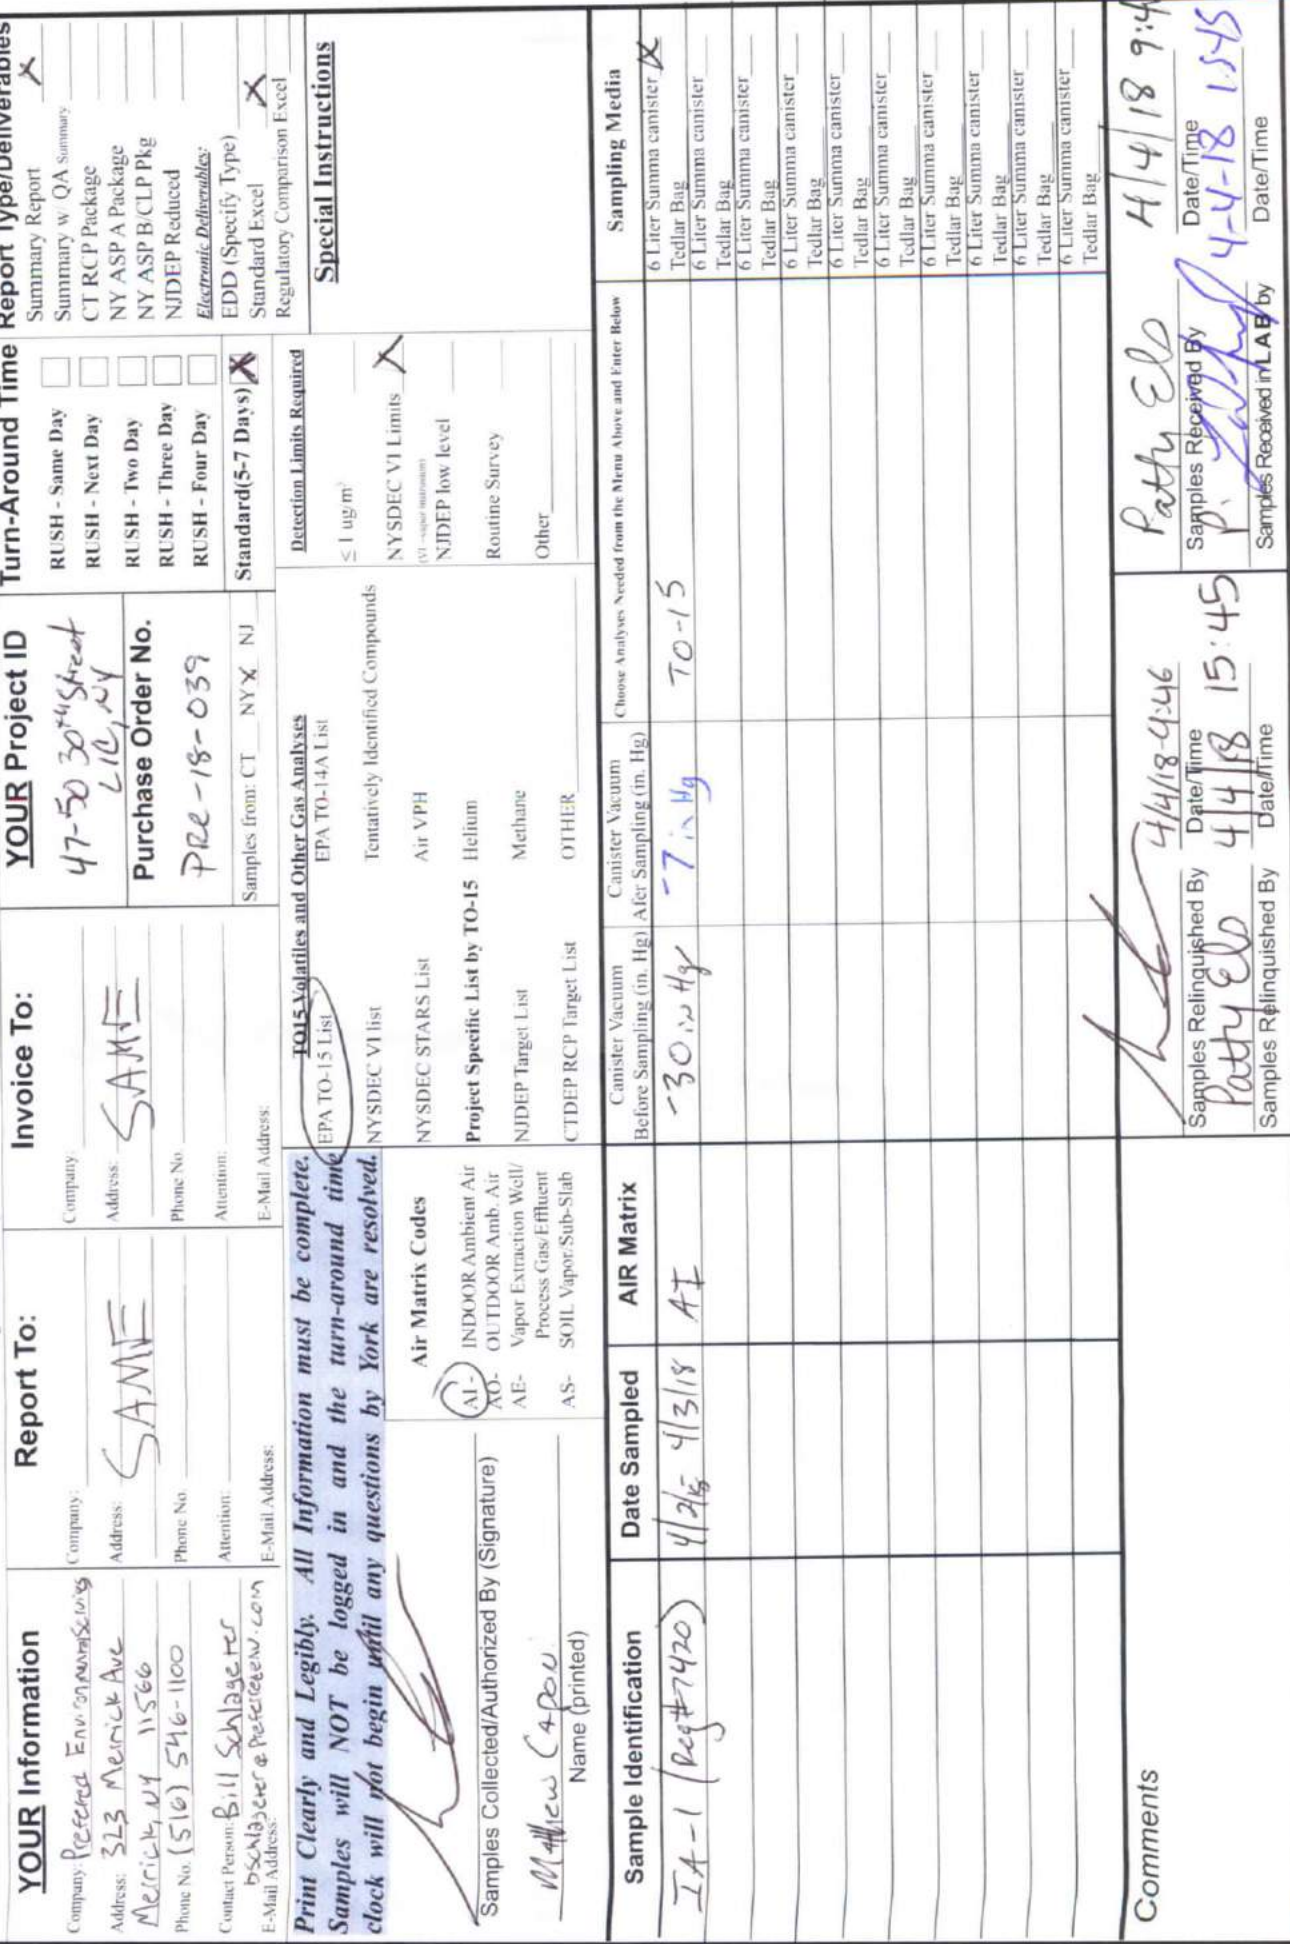 YOUR Information
Company: Preferred Environmental Services
Address: 323 Merrick Ave
Merrick, NY 11566
Phone No. (516) 546-1100
Contact Person: Bill Schlageter
bschlageter@preferredenv.com
E-Mail Address:
Report To:
Company:
Address: SAME
Phone No.
Attention:
E-Mail Address:
Invoice To:
Company:
Address: SAME
Phone No.
Attention:
E-Mail Address:
YOUR Project ID
47-50 30th Street
LIC, NY
Purchase Order No.
PRE-18-039
Samples from: CT NY X NJ
Turn-Around Time
RUSH - Same Day
RUSH - Next Day
RUSH - Two Day
RUSH - Three Day
RUSH - Four Day
Standard(5-7 Days) X
Report Type/Deliverables
Summary Report X
Summary w/ QA Summary
CT RCP Package
NY ASP A Package
NY ASP B/CLP Pkg
NJDEP Reduced
Electronic Deliverables:
EDD (Specify Type)
Standard Excel X
Regulatory Comparison Excel
Print Clearly and Legibly. All Information must be complete.
Samples will NOT be logged in and the turn-around time
clock will not begin until any questions by York are resolved.
Samples Collected/Authorized By (Signature)
Mathew Capon
Name (printed)
Air Matrix Codes
AI - INDOOR Ambient Air
AO- OUTDOOR Amb. Air
AE- Vapor Extraction Well/
Process Gas/Effluent
AS- SOIL Vapor/Sub-Slab
TO15 Volatiles and Other Gas Analyses
EPA TO-15 List EPA TO-14A List
NYSDEC VI list Tentatively Identified Compounds
NYSDEC STARS List Air VPH
Project Specific List by TO-15 Helium
NJDEP Target List Methane
CTDEP RCP Target List OTHER
Detection Limits Required
≤ 1 ug/m³
NYSDEC VI Limits X
(VI =vapor intrusion)
NJDEP low level
Routine Survey
Other
Special Instructions
Sample Identification
Date Sampled
AIR Matrix
Canister Vacuum
Before Sampling (in. Hg)
Canister Vacuum
After Sampling (in. Hg)
Choose Analyses Needed from the Menu Above and Enter Below
Sampling Media
IA-1 (Reg#7420) 4/2/18- 4/3/18 AI -30 in Hg -7 in Hg TO-15 6 Liter Summa canister X
Tedlar Bag
6 Liter Summa canister
Tedlar Bag
6 Liter Summa canister
Tedlar Bag
6 Liter Summa canister
Tedlar Bag
6 Liter Summa canister
Tedlar Bag
6 Liter Summa canister
Tedlar Bag
6 Liter Summa canister
Tedlar Bag
6 Liter Summa canister
Tedlar Bag
6 Liter Summa canister
Tedlar Bag
6 Liter Summa canister
Tedlar Bag
Comments
4/4/18-9:46
Samples Relinquished By Date/Time
Patty Elo 4/4/18 15:45
Samples Relinquished By Date/Time
Patty Elo 4/4/18 9:4
Samples Received By Date/Time
4-4-18 1545
Samples Received in LAB by Date/Time